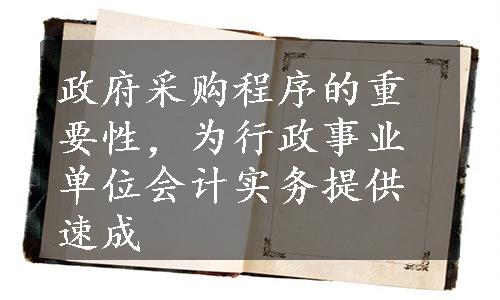 政府采购程序的重
要性，为行政事业
单位会计实务提供
速成